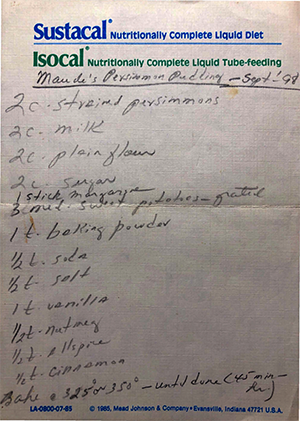 Sustacal® Nutritionally Complete Liquid Diet
Isocal® Nutritionally Complete Liquid Tube-feeding
Maude's Persimmon Pudding - Sept '98
2c. strained persimmons
2c. milk
2c. plain flour
2c. sugar
1 stick margarine
3 med. sweet potatoes - grated
1 t. baking powder
1/2 t. soda
1/2 t. salt
1 t. vanilla
1/2 t. nutmeg
1/2 t. allspice
1/2 t. cinnamon
Bake @ 325° or 350° - until done (45 min -
LA-0800-07-85 © 1985, Mead Johnson & Company • Evansville, Indiana 47721 U.S.A.